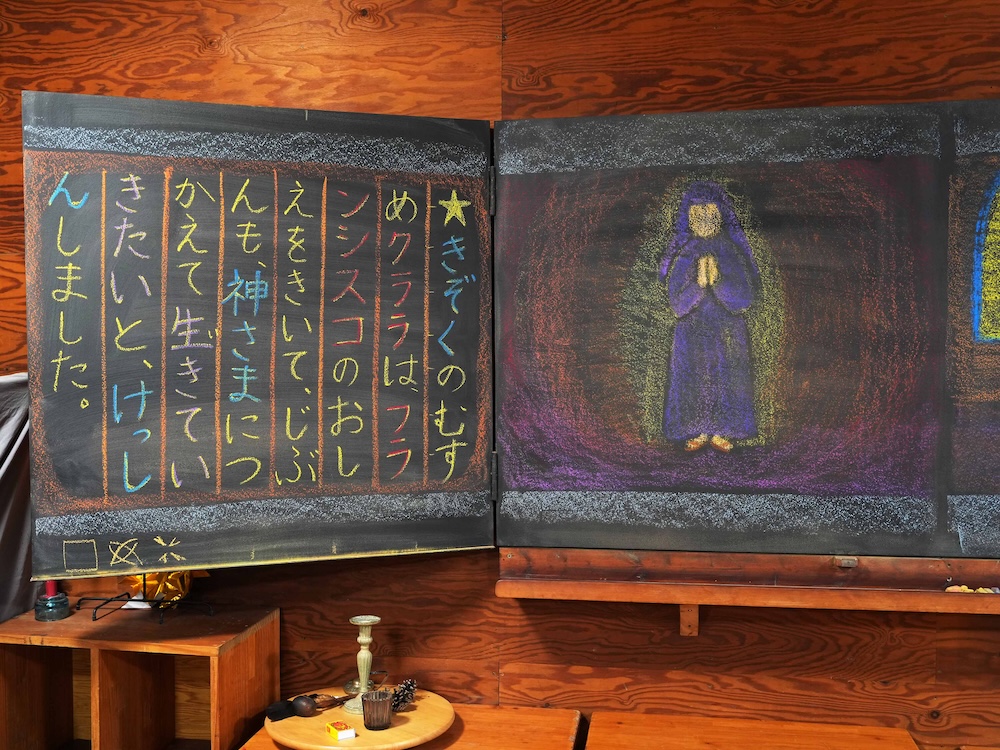 ★きぞくのむす
めクララは、フラ
ンシスコのおし
えをきいて、じぶ
んも、神さまにつ
かえて生きてい
きたいと、けっし
んしました。